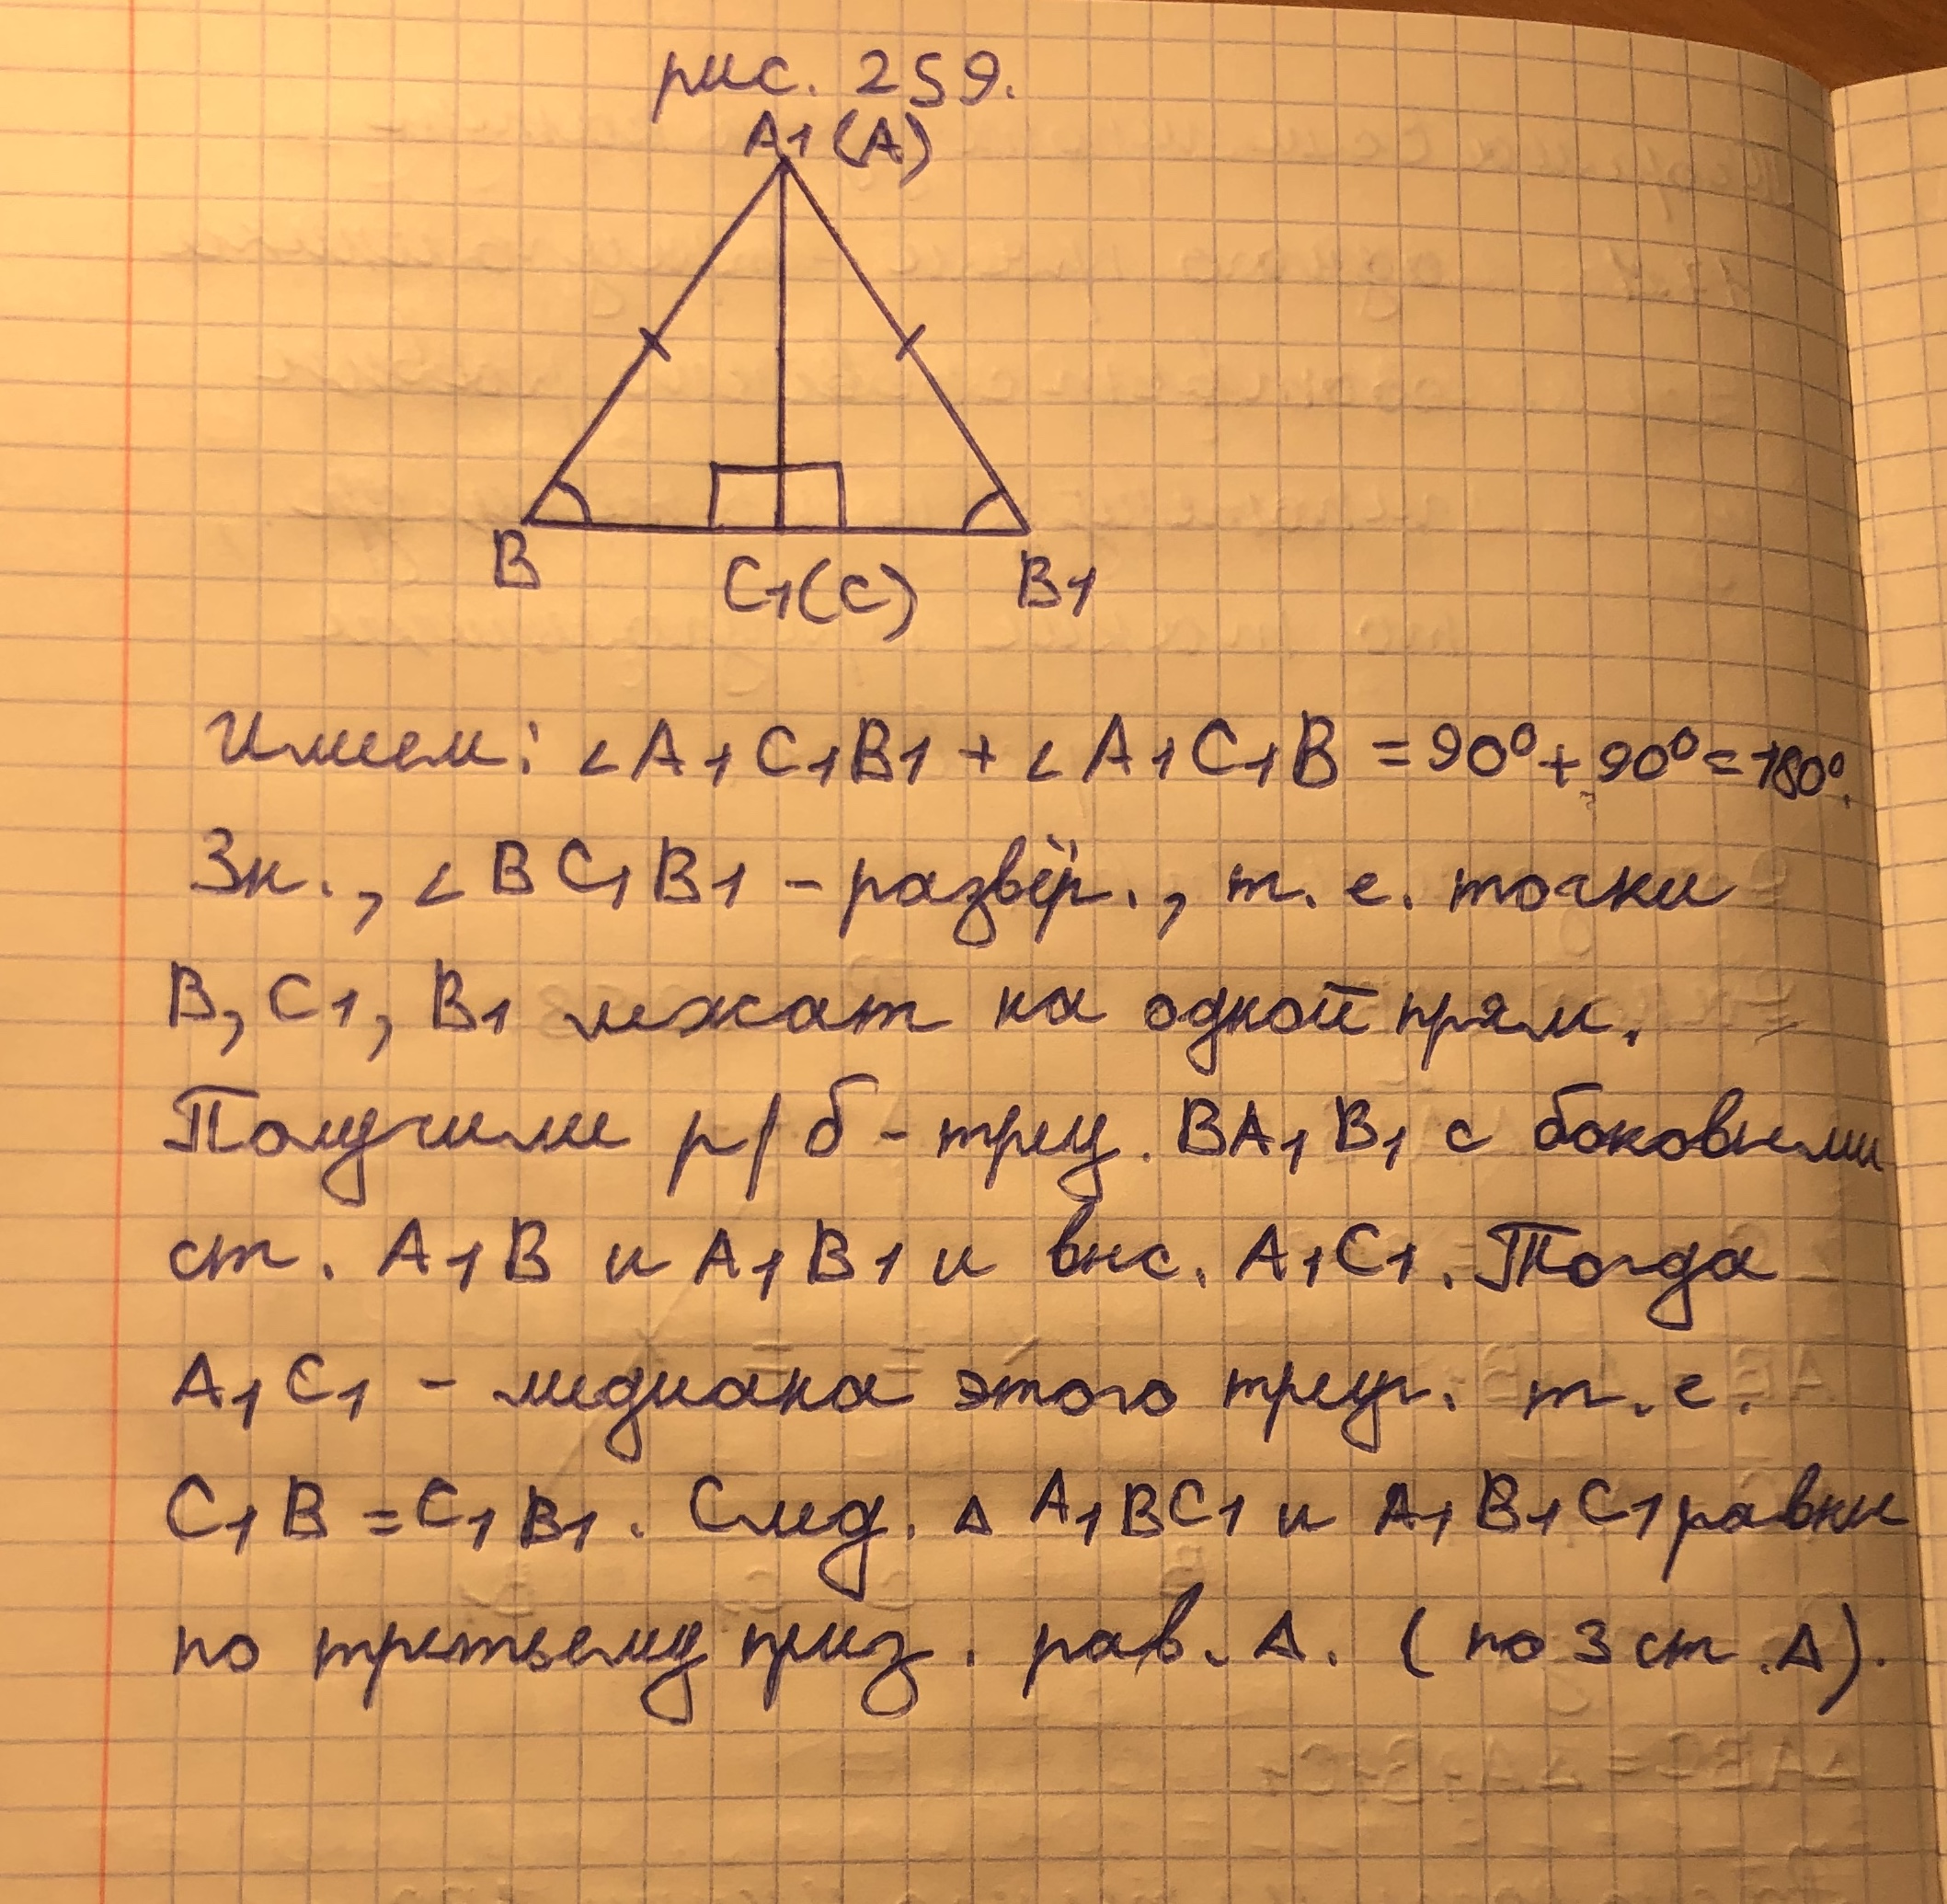 рис. 259.
A1 (A)
B
C1(C)
B1
Имеем: ∠A1C1B1 + ∠A1C1B = 90⁰+90⁰=180⁰.
Зн., ∠BC1B1 – развёр., т. е. точки
B, C1, B1 лежат на одной прям.
Получили р/б - треу. BA1B1 с боковыми
ст. A1B и A1B1 и выс. A1C1. Тогда
A1C1 – медиана этого треуг. т. е.
C1B = C1B1. След. Δ A1BC1 и A1B1C1 равны
по третьему приз. рав. Δ. (по 3 ст. Δ).